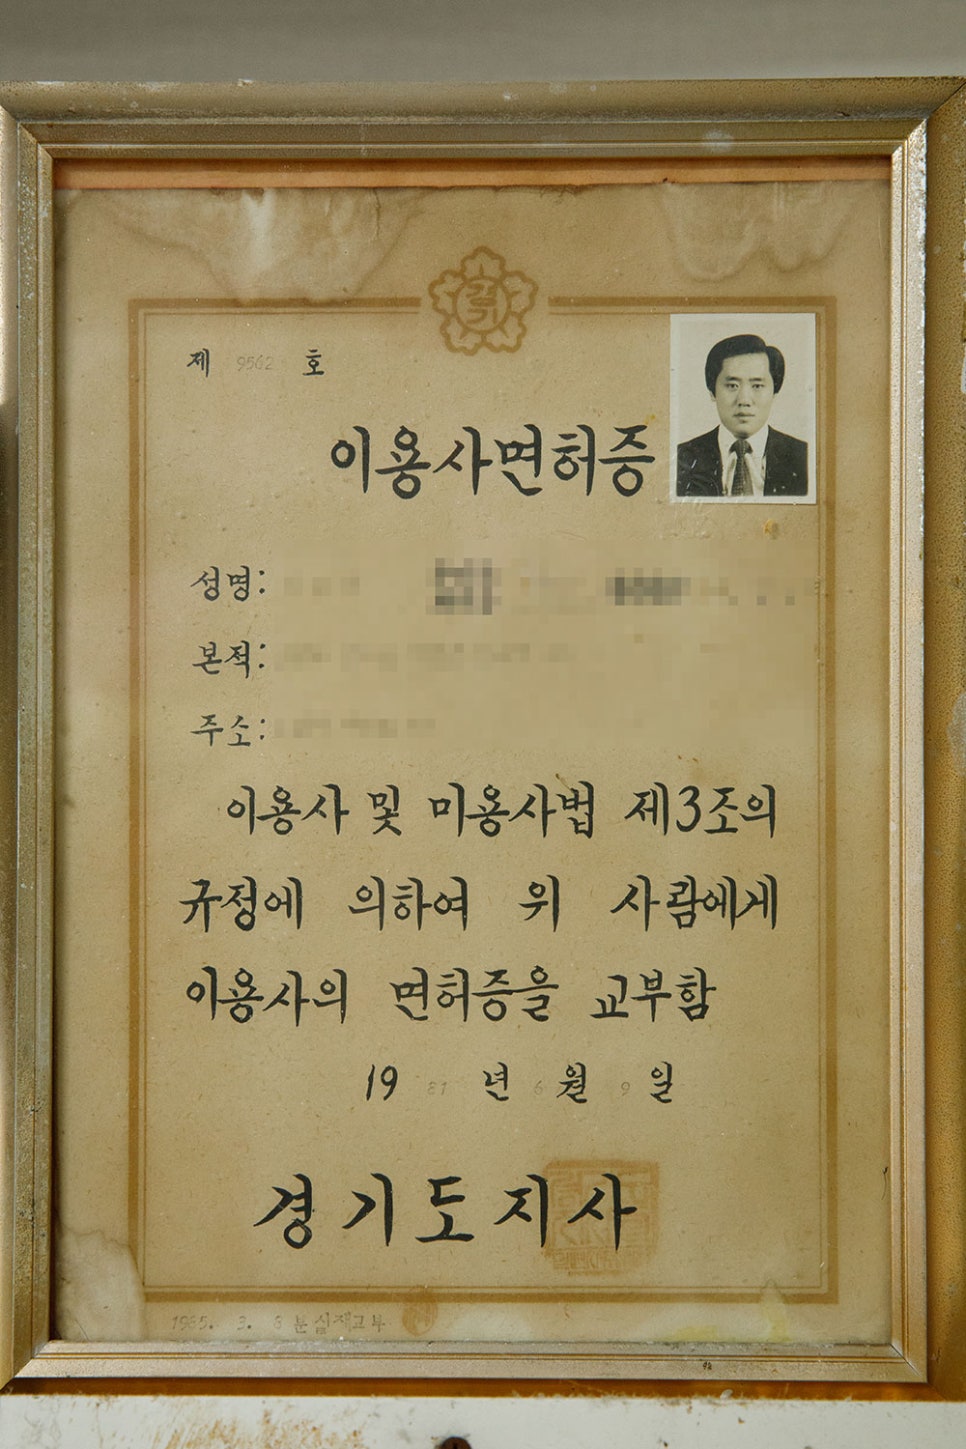 경기
제 9562 호
이용사면허증
성명:
본적:
주소:
이용사 및 미용사법 제3조의
규정에 의하여 위 사람에게
이용사의 면허증을 교부함
19 81 년 6 월 9 일
경기도지사
1985. 3. 8 분실재교부